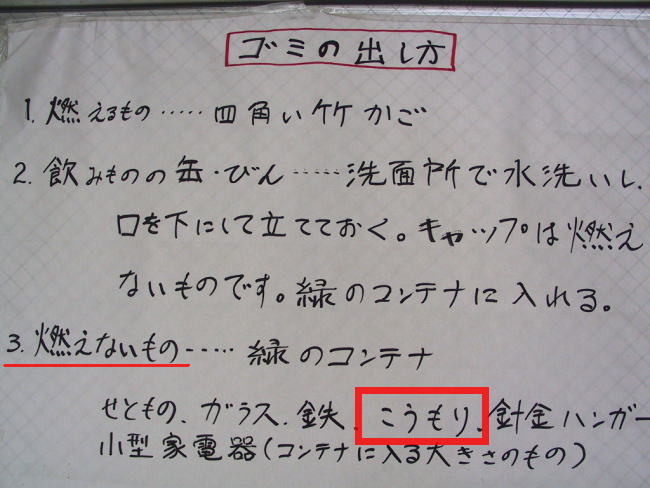 ゴミの出し方
1. 燃えるもの‥‥‥四角い竹かご
2. 飲みものの缶・びん‥‥‥洗面所で水洗いし、
口を下にして立てておく。キャップは燃え
ないものです。緑のコンテナに入れる。
3. 燃えないもの‥‥‥緑のコンテナ
せともの、ガラス、鉄、こうもり、針金ハンガー
小型家電器(コンテナに入る大きさのもの)